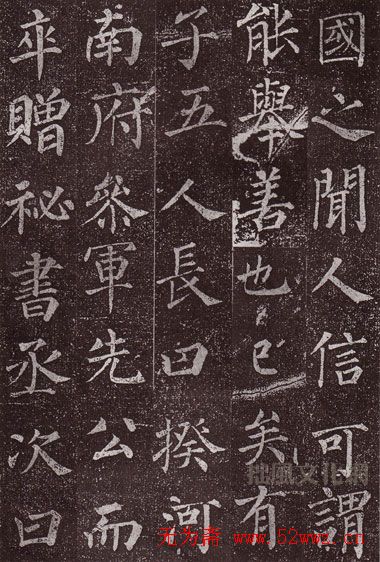 國之聞人信可謂
能舉善也已矣有
子五人長曰揆河
南府參軍先公而
卒贈祕書丞次曰
拙風文化網
无为斋 www.52wwz.cn